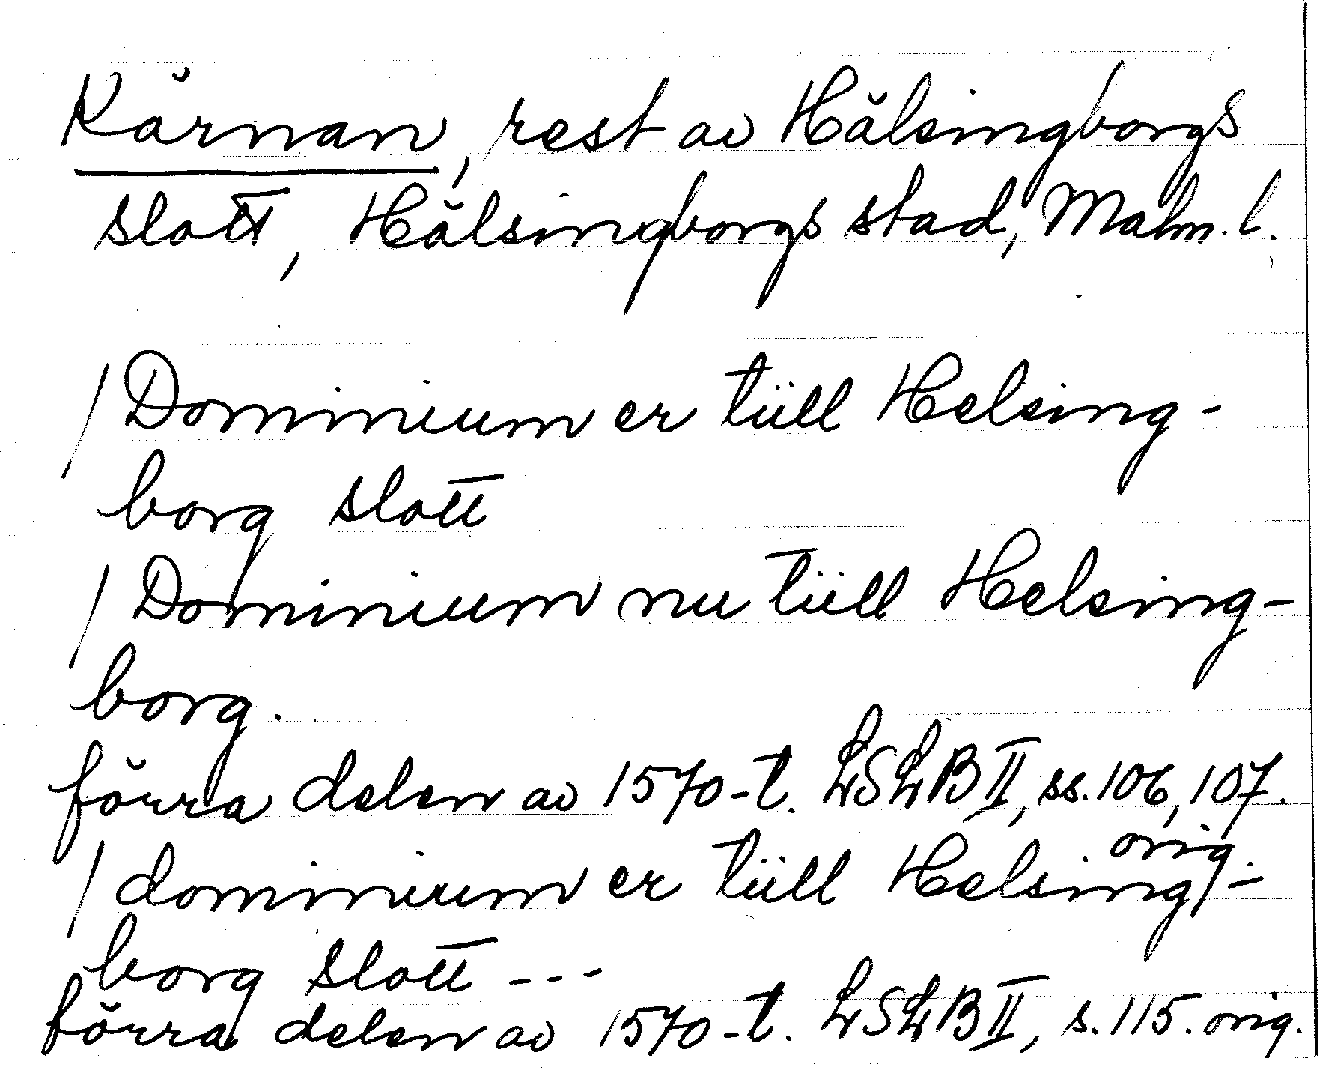 Kärnan, rest av Hälsingborgs
slott, Hälsingborgs stad, Malm. l.
/Dominium er tüll Helsing-
borg slott
/Dominium nu tüll Helsing-
borg.
förra delen av 1570-t. LSLB II, ss. 106, 107.
orig.
/dominium er tüll Helsing-
borg slott ---
förra delen av 1570-t. LSLB II, s. 115. orig.